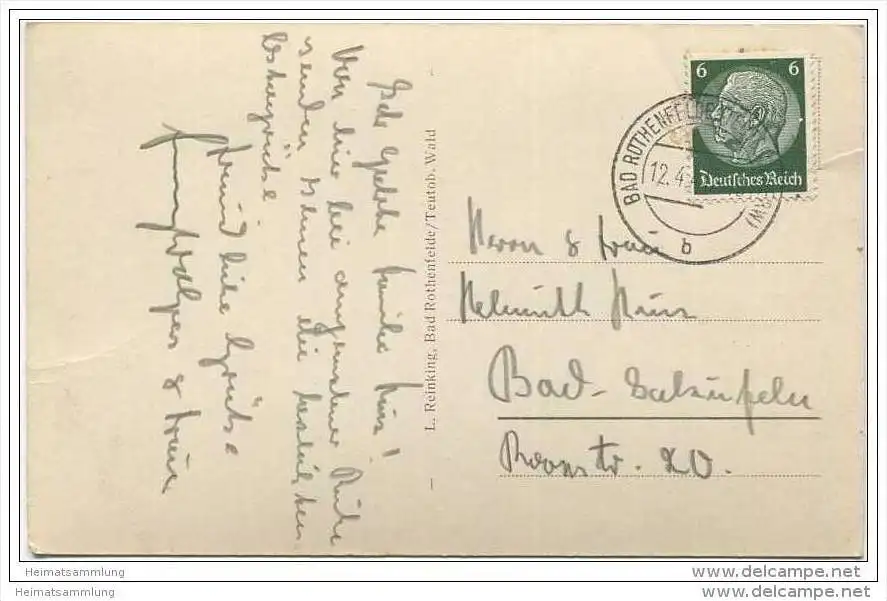 Sehr geehrte Familie
Von hier bei angenehmer Ruhe
senden Ihnen die herzlichsten
Ostergrüße
freundliche Grüße
& Frau
L. Reinking, Bad Rothenfelde/Teutob. Wald
6 6
Deutsches Reich
BAD ROTHENFELDE
12.4
b
Herrn & Frau
Helmuth
Bad-Salzuflen
Roonstr. 20.
Heimatsammlung
Heimatsammlung
www.delcampe.net
www.delcampe.net